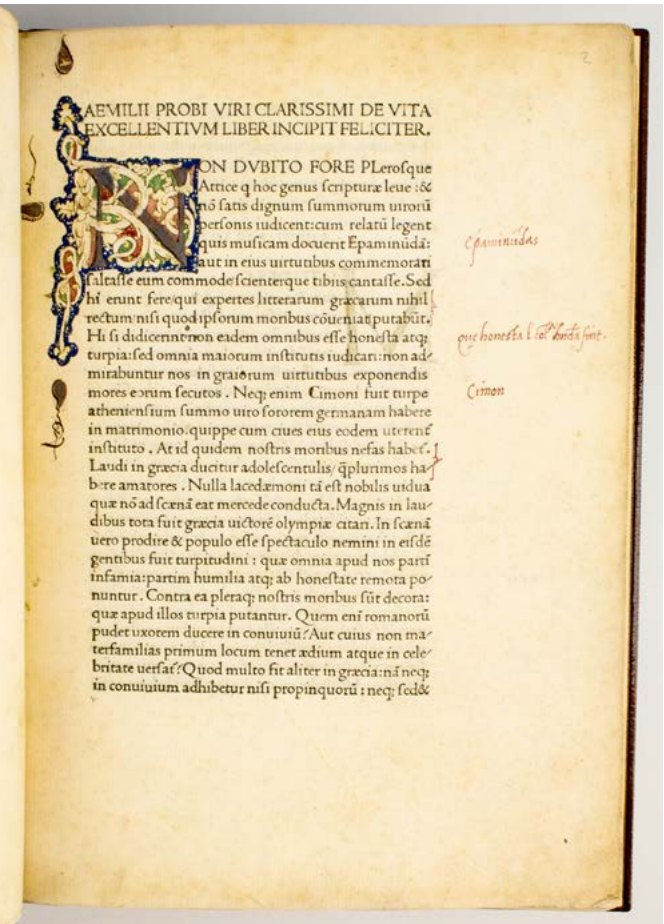 2
AEMILII PROBI VIRI CLARISSIMI DE VITA
EXCELLENTIVM LIBER INCIPIT FELICITER.
NON DVBITO FORE PLeroſque
Attice q hoc genus ſcripturæ leue :&
nō ſatis dignum ſummorum uirorū
perſonis iudicent:cum relatū legent
quis muſicam docuerit Epaminūdā:
aut in eius uirtutibus commemorari
ſaltaſſe eum commode/ſcienterque tibiis cantaſſe.Sed
hi erunt fere/qui expertes litterarum græcarum nihil
rectum/niſi quod ipſorum moribus cōueniat putabūt.
Hi ſi didicerint non eadem omnibus eſſe honeſta atq;
turpia:ſed omnia maiorum inſtitutis iudicari:non ad/
mirabuntur nos in graiorum uirtutibus exponendis
mores eorum ſecutos . Neq; enim Cimoni fuit turpe
athenienſium ſummo uiro ſororem germanam habere
in matrimonio.quippe cum ciues eius eodem uterent̄
inſtituto . At id quidem noſtris moribus nefas habet̄.
Laudi in græcia ducitur adoleſcentulis/ q̄plurimos ha/
bere amatores . Nulla lacedæmoni tā eſt nobilis uidua
quæ nō ad ſcænā eat mercede conducta.Magnis in lau/
dibus tota fuit græcia uictorē olympiæ citari.In ſcænā
uero prodire & populo eſſe ſpectaculo nemini in eiſdē
gentibus fuit turpitudini : quæ omnia apud nos partī
infamia:partim humilia atq; ab honeſtate remota po/
nuntur. Contra ea pleraq; noſtris moribus ſūt decora:
quæ apud illos turpia putantur. Quem enī romanorū
pudet uxorem ducere in conuiuiū?Aut cuius non ma/
terfamilias primum locum tenet ædium atque in cele/
britate uerſat̄?Quod multo fit aliter in græcia:nā neq;
in conuiuium adhibetur niſi propinquorū : neq; ſed&
epaminūdas
que honesta
Cimon